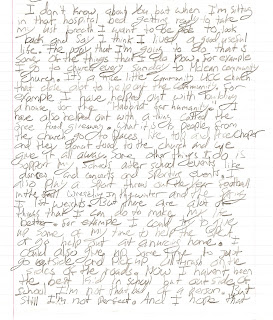 I don't know about you but when I'm sitting
in that hospital bed getting ready to take
my last breath I want to be able to look
back and say I think I lived a good
life. the that I'm going to do that is
some of the things that I do now. for example
I go to church every Sunday to Pilgrim community
Church. It's a little community UCC church
that does alot to help out the community. For
example I have helped out with building
a house for the for humanity. I
have also helped out with a thing called the
food giveaway. what is people from
the church go to places like
and they donate food to the church and we
give it all away. Some other things I do is
support my school other school events like
dances and concerts and sporting events. I
also play a sport three of them football
in the fall wrestling in the winter and
I lift weights. Also there are alot of
things that I can do to make my life
better. For example I could give
up some of my time to help the
or go help out at an nursing home. I
could also give up some time to just
go outside and pick up all trash off the
sides of the roads. Now I haven't been
the best kid in school but outside of
school I'm not that bad of a person. But
still I'm not perfect. And I hope that